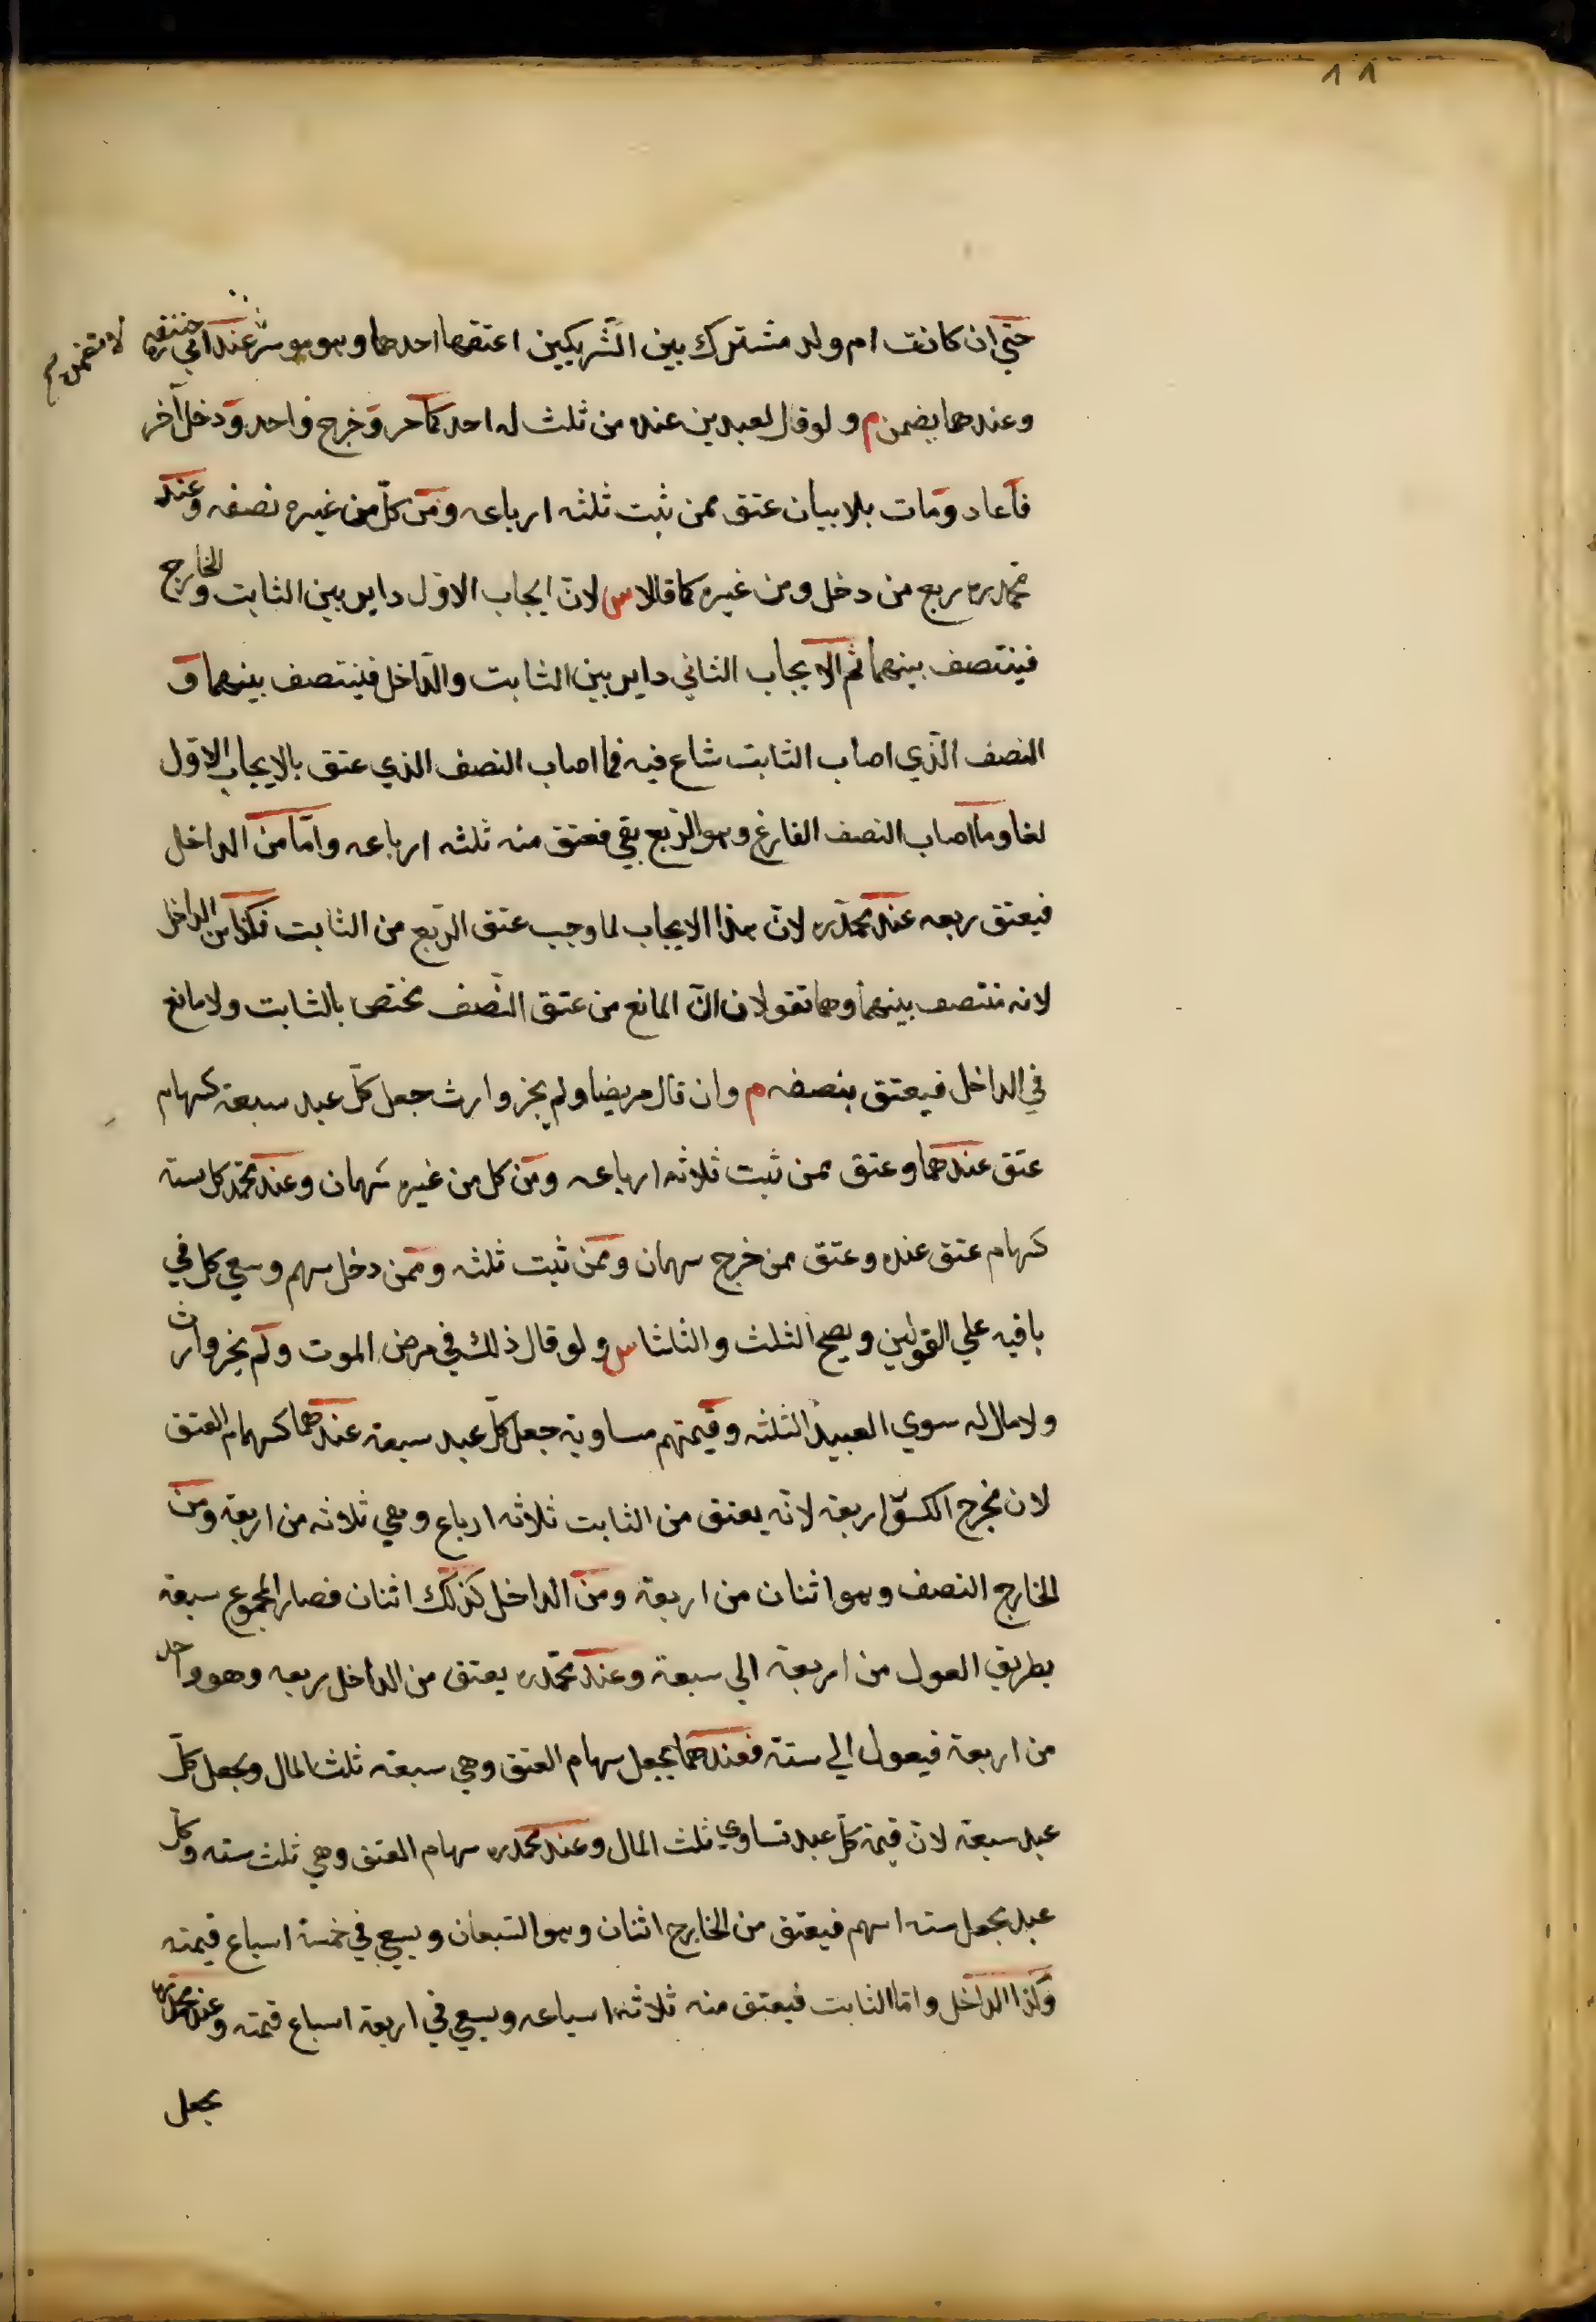 ٨٨
حتي ان كانت ام ولد مشترك بين الشريكين اعتقها احدهما وهو موسر عند ابي حنيفه ره لا يضمن
وعندهما يضمن م ولو قال لعبدين عنده من ثلث له احدكما حر وخرج واحد ودخل آخر
فاعاد ومات بلا بيان عتق ممن ثبت ثلثه ارباعه ومن كل من غيره نصفه وعند
محمد ره ربع من دخل ومن غيره كما قالا س لان ايجاب الاول داير بين الثابت والخارج
فينتصف بينهما ثم الايجاب الثاني داير بين الثابت والداخل فينتصف بينهما و
النصف الذي اصاب الثابت شاع فيه فما اصاب النصف الذي عتق بالايجاب الاول
لغا وما اصاب النصف الفارغ وهو الربع بقي فعتق منه ثلثه ارباعه واما من الداخل
فيعتق ربعه عند محمد ره لان هذا الايجاب لما وجب عتق الربع من الثابت فكذا من الداخل
لانه منتصف بينهما وهما تقولان ان المانع من عتق النصف مختص بالثابت ولا مانع
في الداخل فيعتق بنصفه م وان قال مريضا ولم يجز وارث جعل كل عبد سبعة كسهام
عتق عندهما وعتق ممن ثبت ثلاثه ارباعه ومن كل من غيره سهمان وعند محمد كل سته
كسهام عتق عنده وعتق ممن خرج سهمان وممن ثبت ثلثه وممن دخل سهم وسعي كل في
باقيه علي القولين ويصح الثلث والثلثا س ولو قال ذلك في مرض الموت ولم يجز وارث
ولا مال له سوي العبيد الثلثه وقيمتهم مساوية جعل كل عبد سبعة عندهما كسهام العتق
لان مخرج الكسور اربعة لانه يعتق من الثابت ثلاثه ارباع وهي ثلاثه من اربعة ومن
الخارج النصف وهو اثنان من اربعة ومن الداخل كذلك اثنان فصار المجموع سبعة
بطريق العول من اربعة الي سبعة وعند محمد ره يعتق من الداخل ربعه وهو واحد
من اربعة فيعول الي ستة فعندهما يجعل سهام العتق وهي سبعة ثلث المال ويجعل كل
عبد سبعة لان قيمة كل عبد تساوي ثلث المال وعند محمد ره سهام العتق وهي ثلث سته وكل
عبد يجعل سته اسهم فيعتق من الخارج اثنان وهو السبعان ويسعي في خمسة اسباع قيمته
وكذا الداخل واما الثابت فيعتق منه ثلاثه اسباعه ويسعي في اربعة اسباع قيمته وعند محمد ره
يجعل